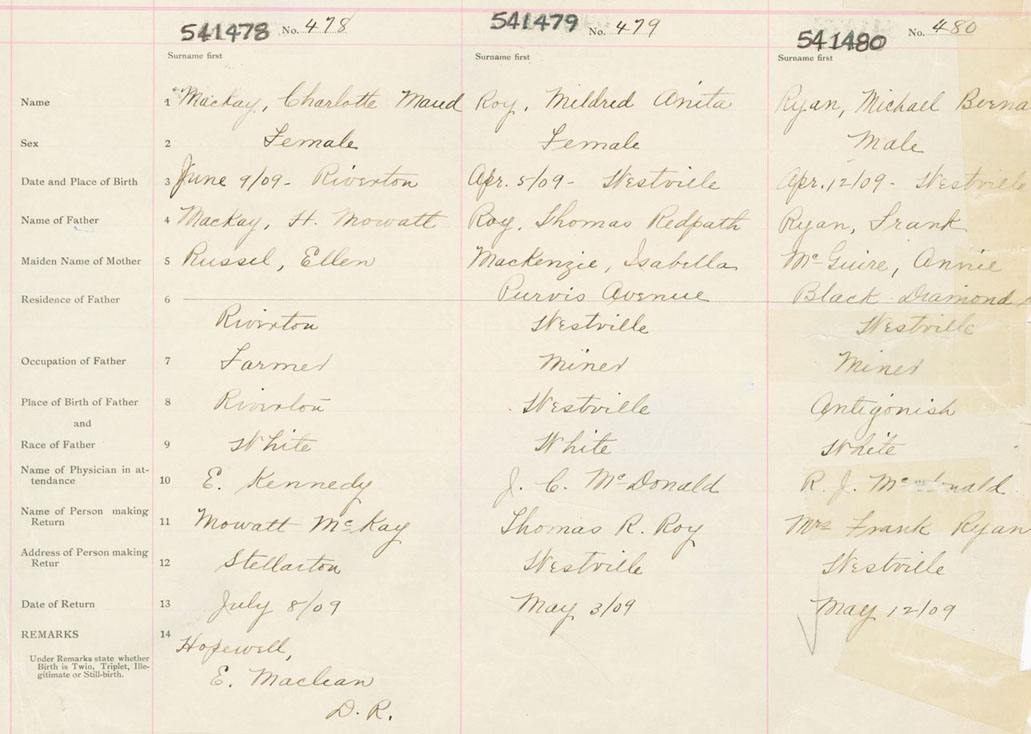 541478 No. 478 541479 No. 479 541480 No. 480
Surname first Surname first Surname first
Name 1 Mackay, Charlotte Maud Roy, Mildred Anita Ryan, Michael Berna
Sex 2 Female Female Male
Date and Place of Birth 3 June 9/09 - Riverton Apr. 5/09 - Westville Apr. 12/09 - Westville
Name of Father 4 Mackay, H. Mowatt Roy, Thomas Redpath Ryan, Frank
Maiden Name of Mother 5 Russel, Ellen Mackenzie, Isabella McGuire, Annie
Residence of Father 6 Purvis Avenue Black Diamond
Riverton Westville Westville
Occupation of Father 7 Farmer Miner Miner
Place of Birth of Father 8 Riverton Westville Antigonish
and
Race of Father 9 White White White
Name of Physician in at-
tendance 10 E. Kennedy J. C. McDonald R. J. McDonald
Name of Person making
Return 11 Mowatt McKay Thomas R. Roy Mrs Frank Ryan
Address of Person making
Retur 12 Stellarton Westville Westville
Date of Return 13 July 8/09 May 3/09 May 12/09
REMARKS 14 Hopewell,
Under Remarks state whether
Birth is Twin, Triplet, Ille-
gitimate or Still-birth.
E. Maclean
D. R.